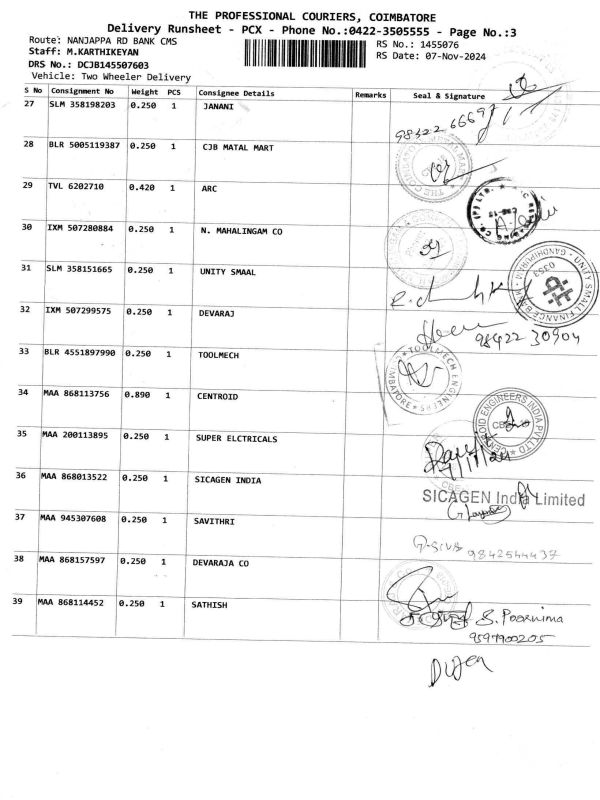 THE PROFESSIONAL COURIERS, COIMBATORE
Delivery Runsheet - PCX - Phone No.:0422-3505555 - Page No.:3
Route: NANJAPPA RD BANK CMS
RS No.: 1455076
Staff: M.KARTHIKEYAN
RS Date: 07-Nov-2024
DRS No.: DCJB145507603
Vehicle: Two Wheeler Delivery
S No Consignment No Weight PCS Consignee Details Remarks Seal & Signature
27 SLM 358198203 0.250 1 JANANI
28 BLR 5005119387 0.250 1 CJB MATAL MART
29 TVL 6202710 0.420 1 ARC
30 IXM 507280884 0.250 1 N. MAHALINGAM CO
31 SLM 358151665 0.250 1 UNITY SMAAL
UNITY SMALL FINANCE
GANDHIPURAM
0353
32 IXM 507299575 0.250 1 DEVARAJ
98422 30904
33 BLR 4551897990 0.250 1 TOOLMECH
TOOLMECH ENGINEERS
34 MAA 868113756 0.890 1 CENTROID
ENGINEERS INDIA PVT LTD
35 MAA 200113895 0.250 1 SUPER ELCTRICALS
36 MAA 868013522 0.250 1 SICAGEN INDIA
SICAGEN India Limited
37 MAA 945307608 0.250 1 SAVITHRI
9842544437
38 MAA 868157597 0.250 1 DEVARAJA CO
39 MAA 868114452 0.250 1 SATHISH
S. Poornima
9597900205